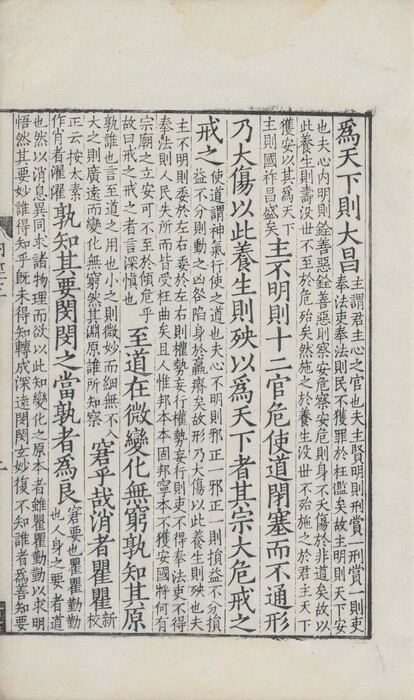 為天下則大昌主謂君主心之官也夫主賢明則刑賞一刑賞一則吏
奉法吏奉法則民不獲罪於枉濫矣故主明則天下安
也夫心內明則銓善惡銓善惡則察安危察安危則身不夭傷於非道矣故以
此養生則壽沒世不至於危殆矣然施之於養生沒世不殆施之於君主天下
獲安以其為天下
主則國祚昌盛矣主不明則十二官危使道閉塞而不通形
乃大傷以此養生則殃以為天下者其宗大危戒之
戒之使道謂神氣行使之道也夫心不明則邪正一邪正一則損益不分損
益不分則動之凶咎陷身於羸瘠矣故形乃大傷以此養生則殃也夫
主不明則委於左右委於左右則權勢妄行權勢妄行則吏不得奉法吏不得
奉法則人民失所而皆受枉曲矣且人惟邦本本固邦寧本不獲安國將何有
宗廟之立安可不至於傾危乎
故曰戒之戒之者言深慎也至道在微變化無窮孰知其原
孰誰也言至道之用也小之則微妙而細無不入
大之則廣遠而變化無窮然其淵原誰所知察窘乎哉消者瞿瞿新校
正云按太素
作肖者濯濯孰知其要閔閔之當孰者為良窘要也瞿瞿勤勤
也人身之要者道
也然以消息異同求諸物理而欲以此知變化之原本者雖瞿瞿勤勤以求明
悟然其要妙誰得知乎既未得知轉成深遠閔閔玄妙復不知誰者為善知要